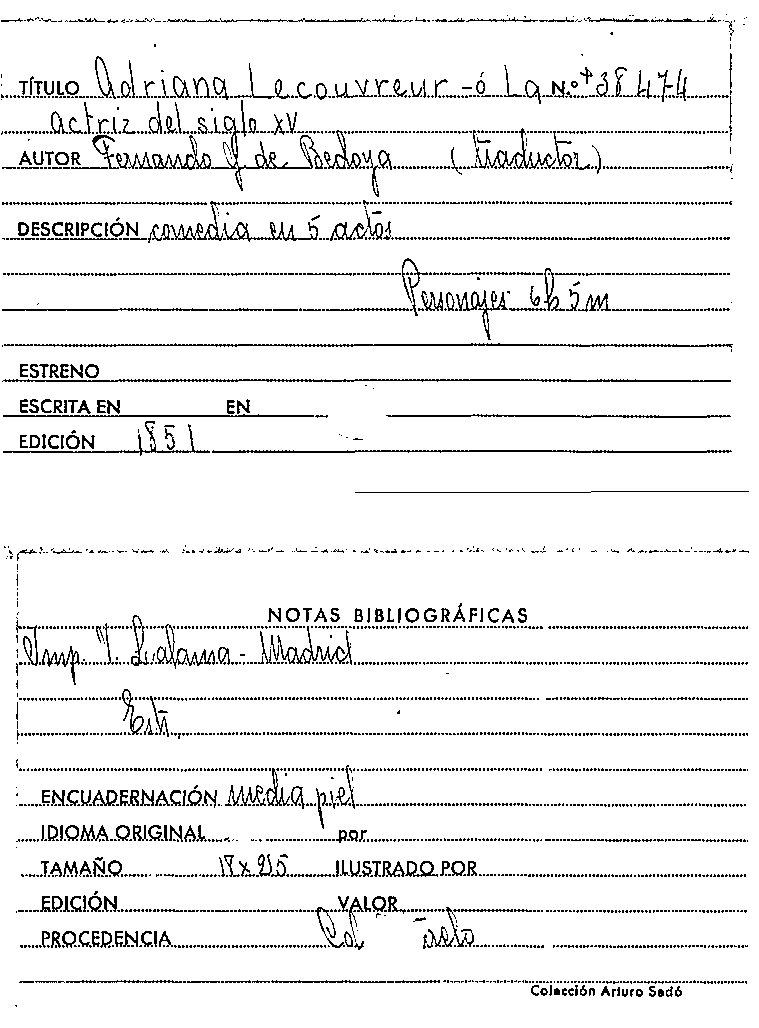 TÍTULO Adriana Lecouvreur - ó La N.º + 38474
actriz del siglo XV
AUTOR Fernando G. de Bedoya (traductor)
DESCRIPCIÓN comedia en 5 actos
Personajes 6h 5m
ESTRENO
ESCRITA EN EN
EDICIÓN 1851
NOTAS BIBLIOGRÁFICAS
Imp. V. Lalama - Madrid
ENCUADERNACIÓN media piel
IDIOMA ORIGINAL por
TAMAÑO ILUSTRADO POR
EDICIÓN VALOR
PROCEDENCIA Col
Colección Arturo Sedó